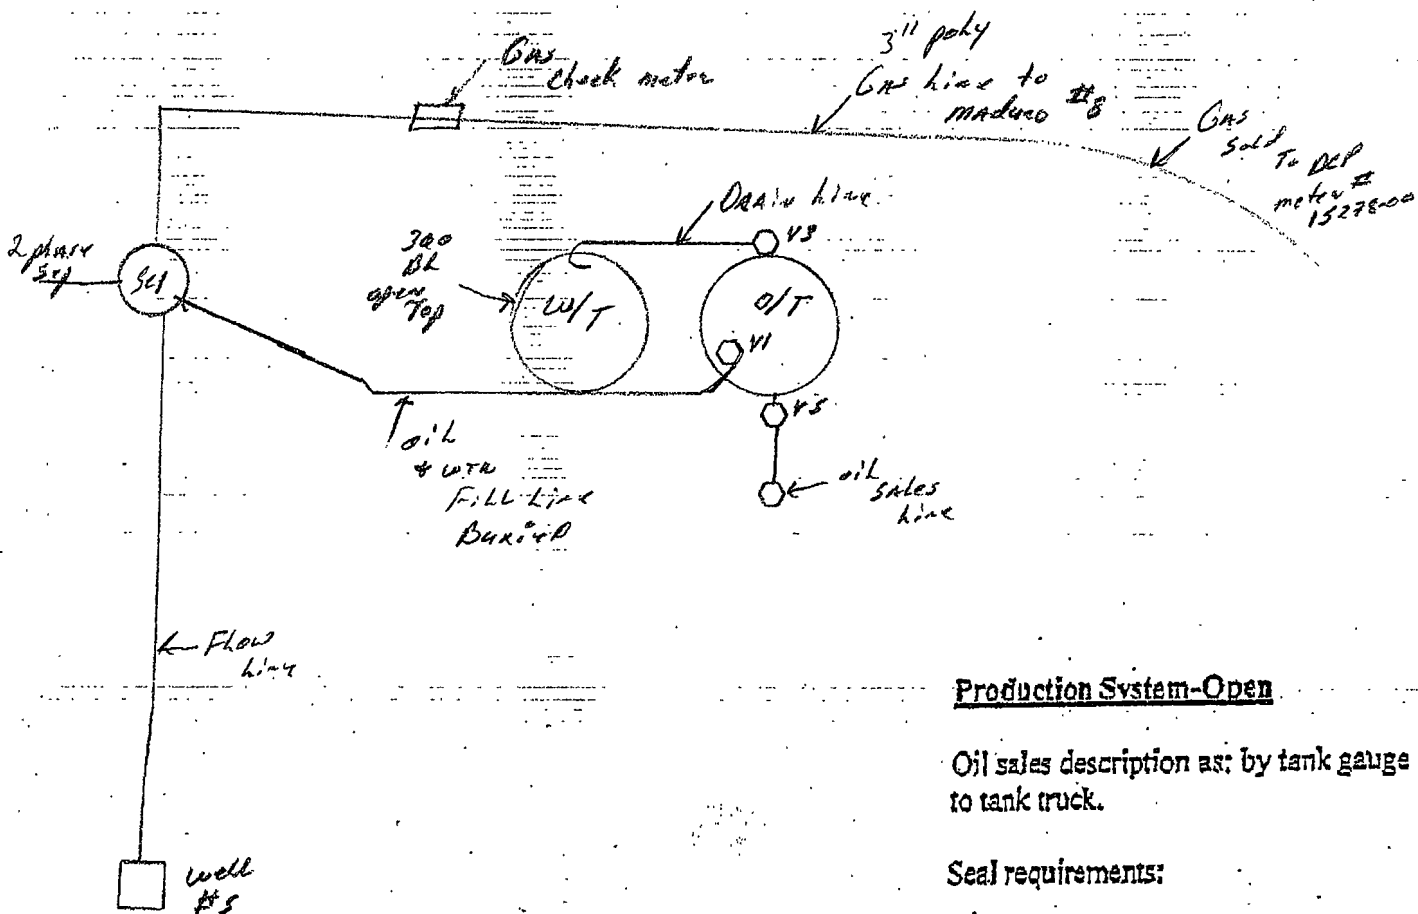 Gas
check meter
3" poly
Gas Line to
Maduro #8
Gas
Sold
To DCP
meter #
15278-00
Drain Line
V3
2 phase
Sep
Sep
300
BL
open
Top
W/T
O/T
V1
V5
oil
& WTR
Fill Line
oil
Sales
Line
Flow
Line
well
#5
Production System-Open
Oil sales description as: by tank gauge
to tank truck.
Seal requirements: